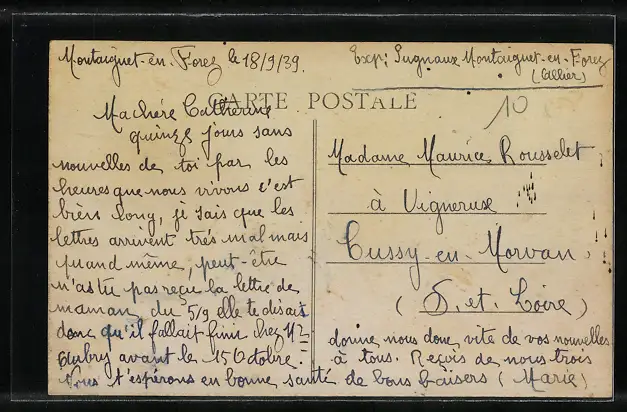 Montaiguet-en-Forez le 18/9/39.
Exp: Pugnaux Montaiguet-en-Forez
(Allier)
CARTE POSTALE
10
Ma chére Catherine
quinze jours sans
nouvelles de toi par les
heures que nous vivons c'est
bien long, je sais que les
lettres arrivent trés mal mais
quand même, peut-être
n'as tu pas reçu la lettre de
maman du 5/9 elle te disait
donc qu'il fallait finir chez Mr
Aubry avant le 15 Octobre.
Nous t'espérons en bonne santé
Madame Maurice Rousselet
à Vigneruse
Cussy-en-Morvan
(S. et. Loire)
donne nous donc vite de vos nouvelles
à tous. Reçois de nous trois
de bons baisers (Marie)